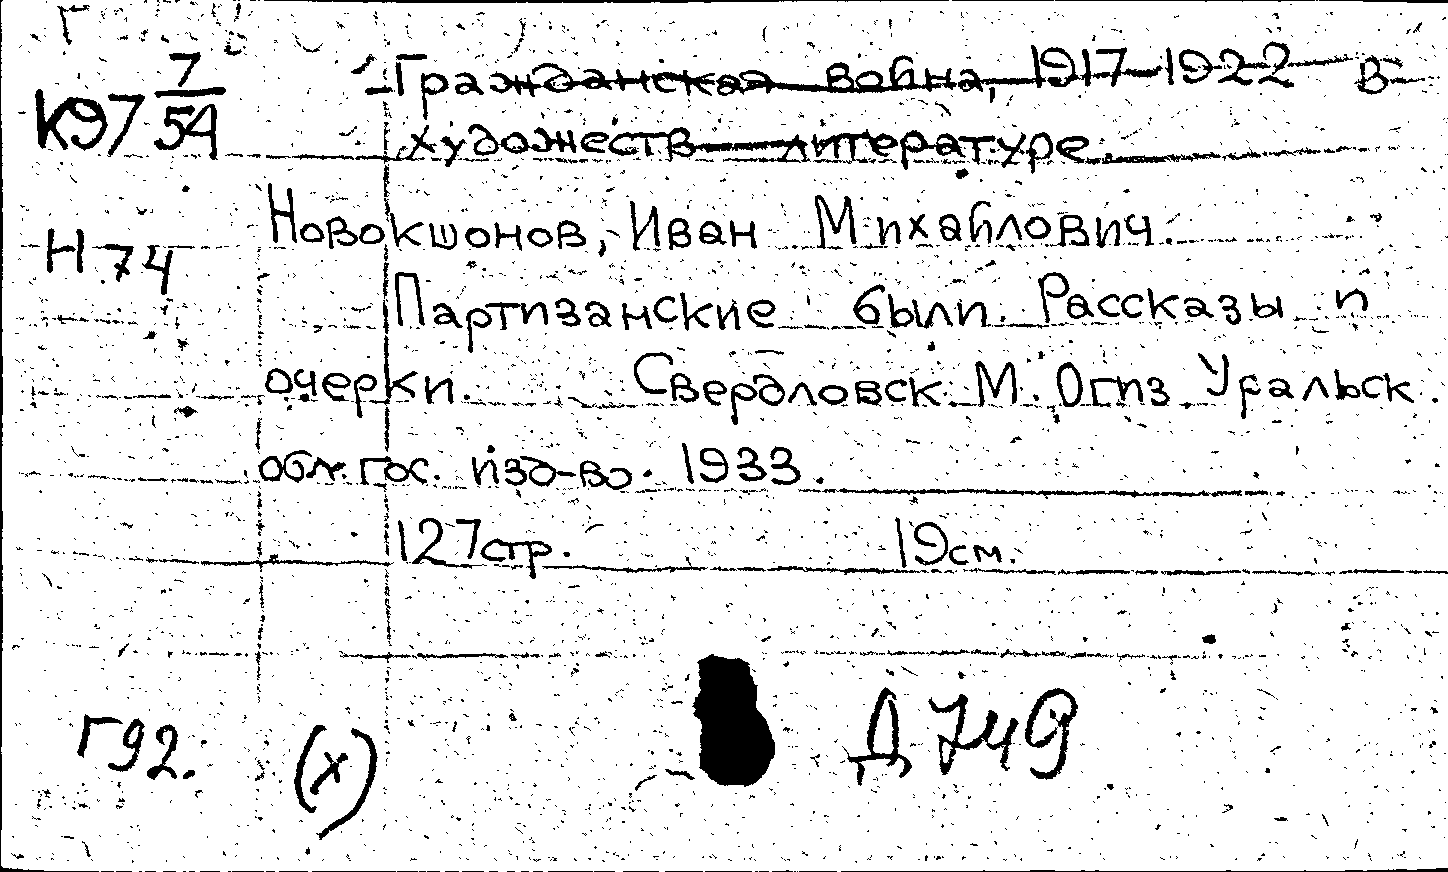 К97 7/54 Гражданская война, 1917-1922 в
художеств литературе.
Новокшонов, Иван Михайлович.
Н74
Партизанские были. Рассказы и
очерки. Свердловск. М. Огиз. Уральск.
обл. гос. изд-во. 1933.
127стр. 19см.
Г92. (х) Д749